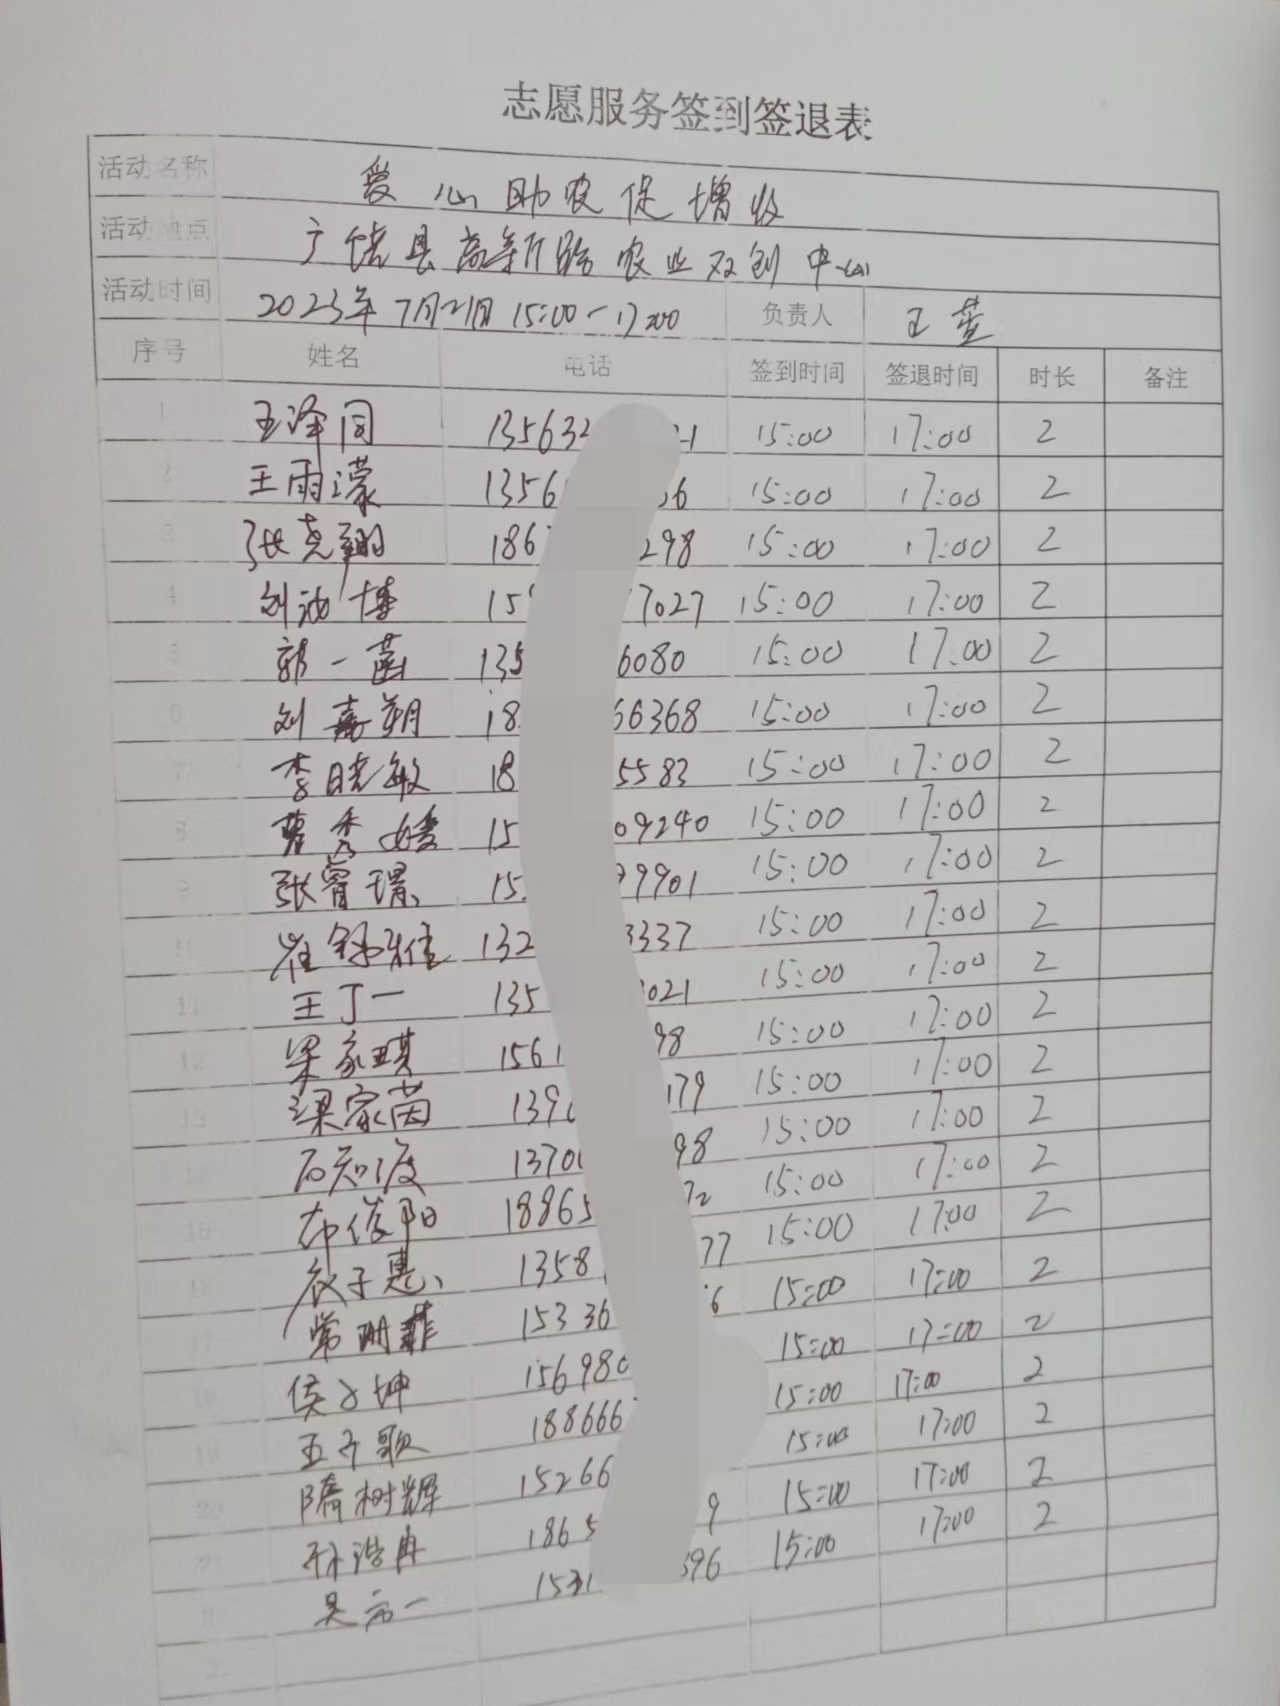 志愿服务签到签退表
活动名称 爱心助农促增收
活动地点 广饶县高新 农业双创中心
活动时间 2023年7月21日 15:00-17:00 负责人 王莹
序号 姓名 电话 签到时间 签退时间 时长 备注
1 王泽同 13563 21 15:00 17:00 2
2 王雨濛 1356 6 15:00 17:00 2
3 张尧翔 186 298 15:00 17:00 2
4 刘 博 15 7027 15:00 17:00 2
5 郭一菡 135 6080 15:00 17:00 2
6 刘嘉朔 18 66368 15:00 17:00 2
7 李晓敏 18 5583 15:00 17:00 2
8 曹秀媛 15 09240 15:00 17:00 2
9 张 15 9901 15:00 17:00 2
10 崔 雅 132 3337 15:00 17:00 2
11 王丁一 135 021 15:00 17:00 2
12 梁家琪 1561 98 15:00 17:00 2
13 梁家茵 139 179 15:00 17:00 2
14 石知 1370 98 15:00 17:00 2
15 俊阳 18865 72 15:00 17:00 2
16 子惠 1358 77 15:00 17:00 2
17 常珊菲 15336 6 15:00 17:00 2
18 侯子坤 156980 15:00 17:00 2
19 王子歌 188666 15:00 17:00 2
20 隋树辉 15266 9 15:00 17:00 2
孙浩冉 1865 396 15:00 17:00 2
吴 一 1531